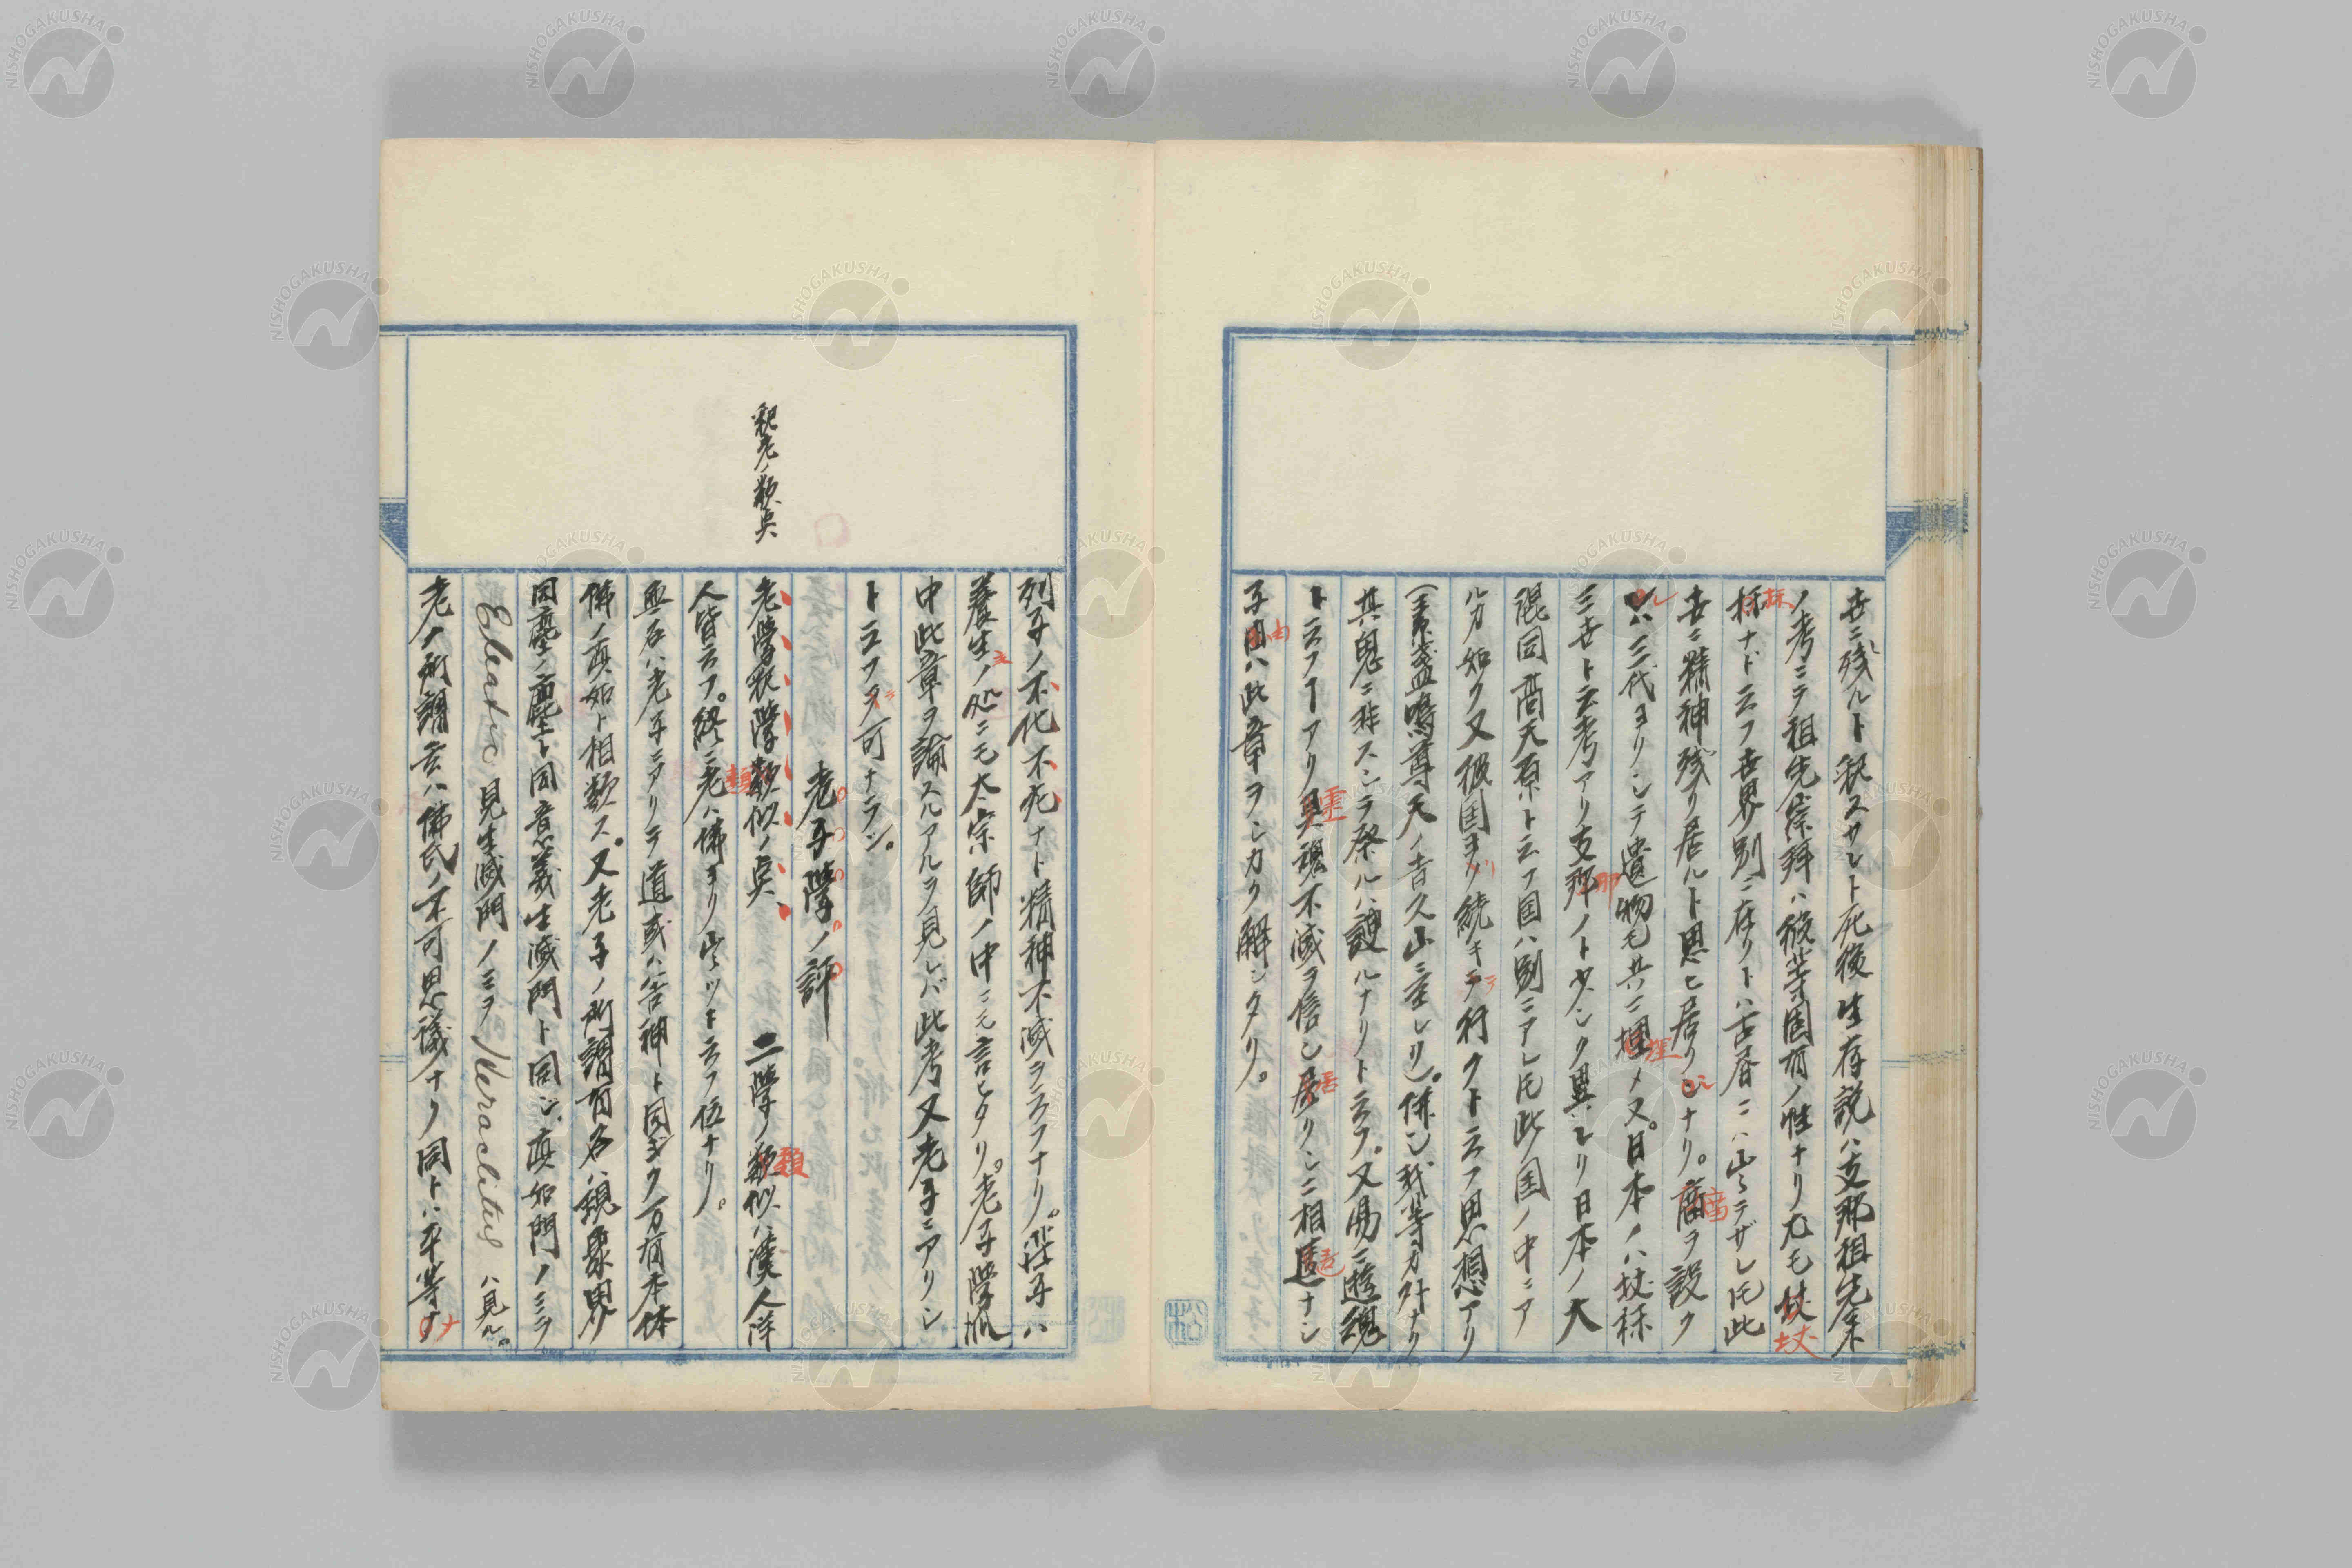 世ニ残ルト釈スサレト死後生存説ハ支那祖先来
ノ考ニテ祖先崇拜ハ彼等固有ノ性ナリ尤モ坟
坟
抹ナドニ云フ世界別ニ存リトハ古昔ニハ山ラザレ𪜈此
世ニ精神残リ居ルト思ヒ居リシナリ。廟ヲ設ク
ルハ三代ヨリシテ遺物モ共ニ埋メ又。日本ノハ坟抹
埋
三世ト云考アリ支那ノト少シク異レリ日本ノ大
那
混同高天原ト云フ国ハ別ニアレ𪜈此国ノ中ニア
ルカ如ク又彼国ヨリ続キテ行クト云フ思想アリ
(素盞嗚尊天ノ吉ス山ニ至レリ)。併シ我等カ外ナリ
其鬼ニ非スシテ祭ルハ諛ルナリト云フ。又易ニ遊魂
ト云フヿアリ霊魂不滅ヲ信シ居リシニ相違ナシ
霊
居
違
子由ハ此章ヲシカク解シタリ。
由
列子ノ不化不死ナト精神不滅ヲ云フナリ。荘子ハ
養生ノ処ニモ大宗師ノ中ニモ言ヒタリ。老子学派
主
中此章ヲ論スルアルヲ見レバ此考又老子ニアリシ
ト云フヲ可ナラン。
老子学ノ評
釈老ノ類点
老学釈学類似ノ点、 二学ノ類似ハ漢人洋
類
類
人皆云フ。終ニ老ハ佛ヨリ出ツト云フ位ナリ。
無名ハ老子ニアリテ道或ハ谷神ト同ジク万有本体
佛ノ真如ト相類ス。又老子ノ所謂有名ハ現象界
同塵ノ塵ト同意義生滅門ト同シ。真如門ノミヲ
Eleatic 見生滅門ノミヲ Heraclitus ハ見ル。
老ノ所謂玄ハ佛氏ノ不可思議ナリ同トハ平等ナ